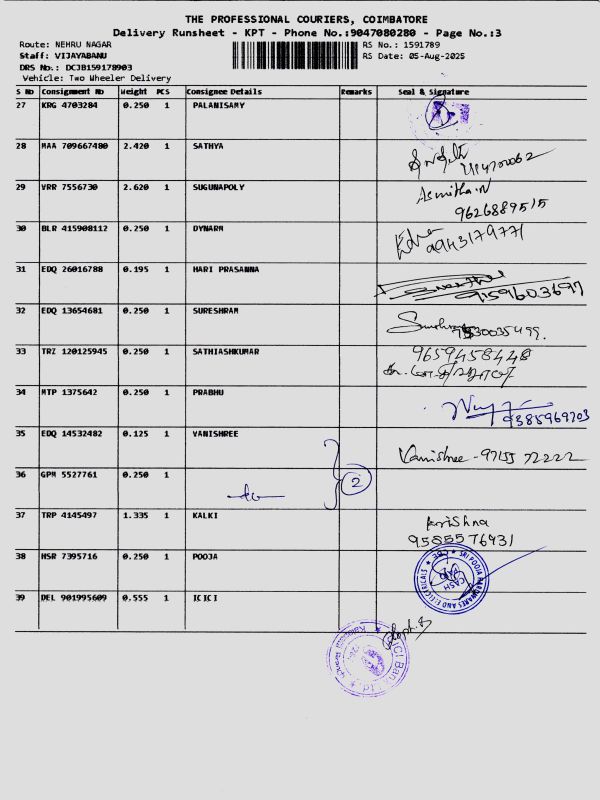 THE PROFESSIONAL COURIERS, COIMBATORE
Delivery Runsheet - KPT - Phone No.:9047080280 - Page No.:3
Route: NEHRU NAGAR RS No.: 1591789
Staff: VIJAYABANU RS Date: 05-Aug-2025
DRS No.: DCJB159178903
Vehicle: Two Wheeler Delivery
S No Consignment No Weight PCS Consignee Details Remarks Seal & Signature
27 KRG 4703284 0.250 1 PALANISAMY
28 MAA 709667480 2.420 1 SATHYA
29 VRR 7556730 2.620 1 SUGUNAPOLY Asmitha.N
9626889515
30 BLR 415908112 0.250 1 DYNARM 9943179771
31 EDQ 26016788 0.195 1 HARI PRASANNA
9159603697
32 EDQ 13654681 0.250 1 SURESHRAM
33 TRZ 120125945 0.250 1 SATHIASHKUMAR 9659458448
34 MTP 1375642 0.250 1 PRABHU
9385969703
35 EDQ 14532482 0.125 1 VANISHREE Vanishree - 97155 72222
36 GPM 5527761 0.250 1 2
37 TRP 4145497 1.335 1 KALKI Krishna
9585576931
38 HSR 7395716 0.250 1 POOJA SRI POOJA HARDWARES AND ELECTRICALS
39 DEL 901995609 0.555 1 ICICI
ICICI Bank Ltd